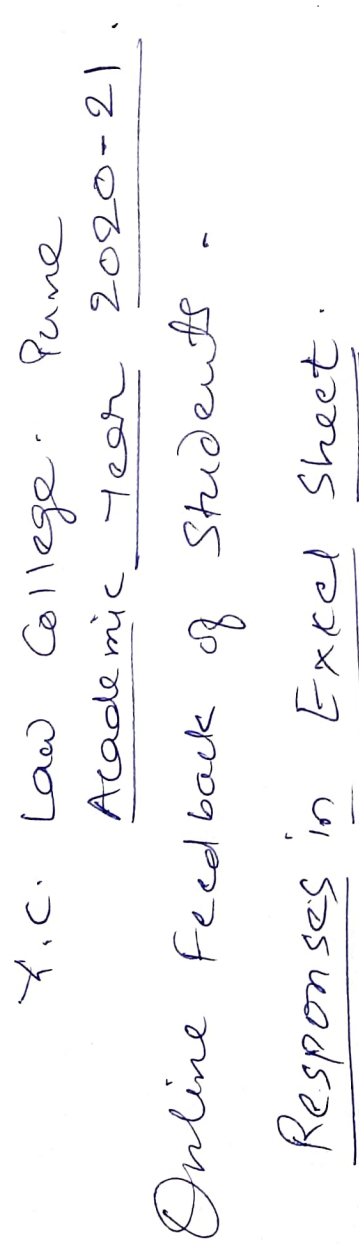 Y.C. Law College. Pune
Academic Year 2020-21.
Online Feedback of Students.
Responses in Exxel Sheet.